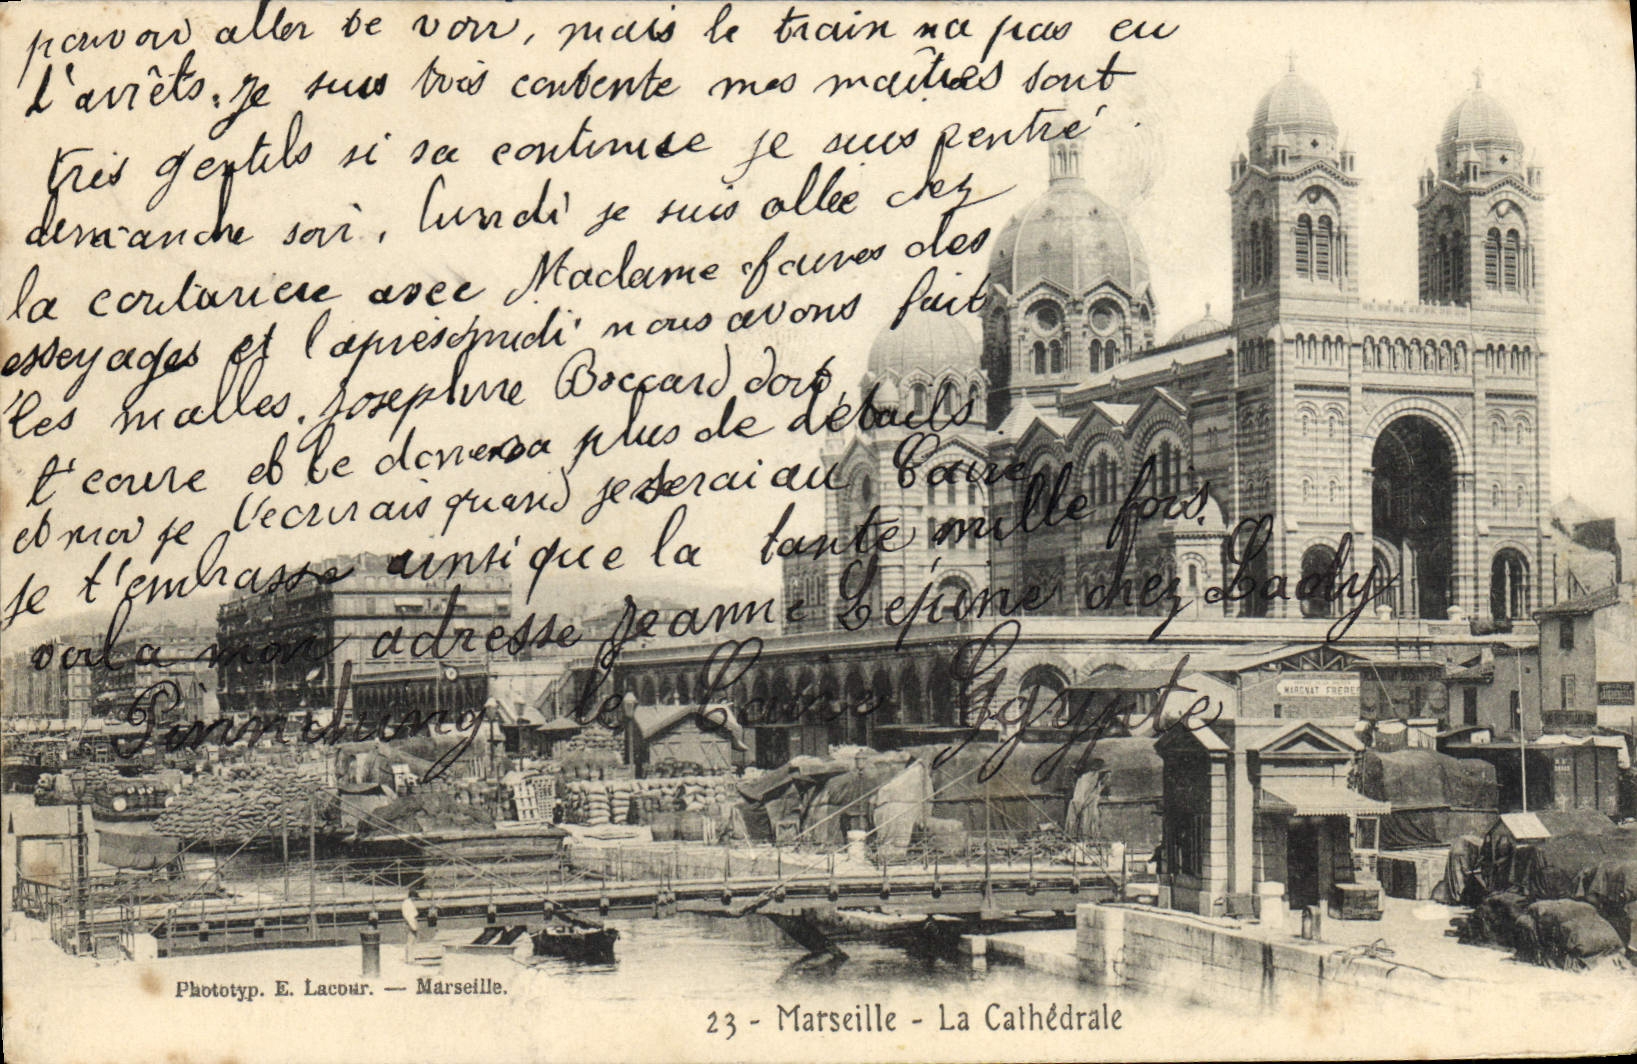 pouvoir aller te voir, mais le train na pas eu
d'arrêts. je suis trés contente mes maîtres sont
tres gentils si sa continue je suis rentré
dimanche soir, lundi je suis allée chez
la couturiere avec Madame faures des
esseyages et l'aprésmidi nous avons fait
les malles. Josephine Boccard doit
t'ecrire et te donnera plus de détails
et moi je t'ecrirais quand je serai au Caire
je t'embrasse ainsi que la tante mille fois.
voila mon adresse Jeanne Lépine chez Lady
le Caire Egypte
MARGNAT FRERES
Phototyp. E. Lacour. — Marseille.
23 - Marseille - La Cathédrale